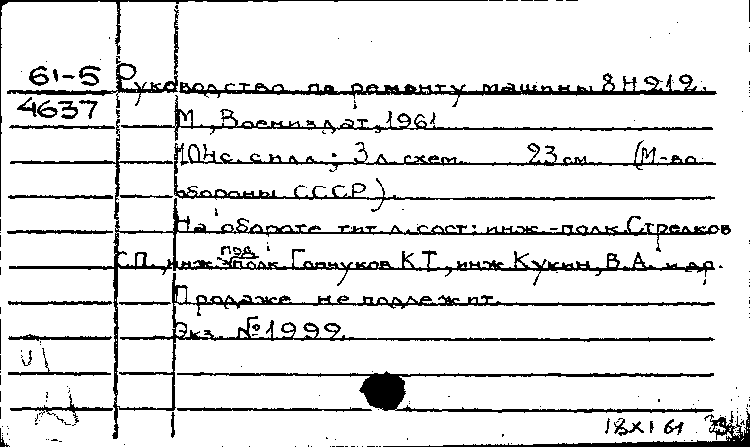 61-5 Руководство по ремонту машины 8Н212.
4637
М., Воениздат, 1961
104с. с илл.; 3 л. схем. 23 см (М-во
обороны СССР).
На обороте тит. л. сост: инж.-полк. Стрелков
С.П., инж. подполк. К.Т., инж. Кукин, В.А. и др.
Продаже не подлежит.
Экз. № 1999.
18 XI 61